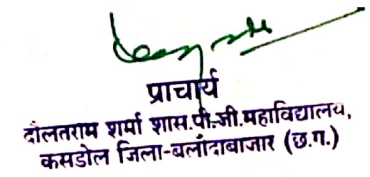 प्राचार्य
दौलतराम शर्मा शास.पी.जी.महाविद्यालय,
कसडोल जिला-बलौदाबाजार (छ.ग.)